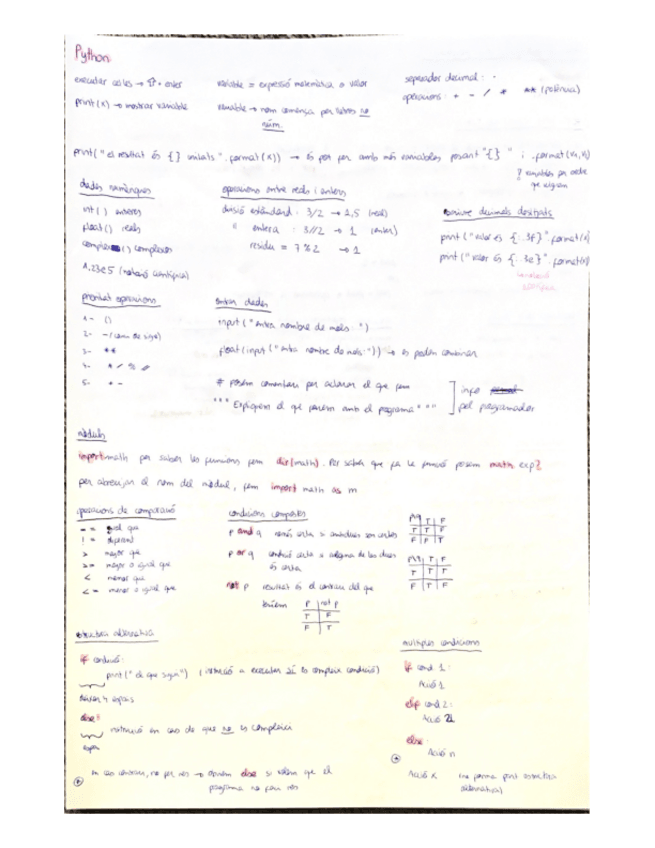 Python
executar coses → ⇧ + enter
variable = expressió matemàtica o valor
separador decimal: .
print(x) → mostrar variable
variable → nom comença per lletres no núm.
operacions: + - / * ** (potència)
print("el resultat és {} unitats".format(x)) → és pot fer amb més variables posant "{} " i .format(v₁,v₂)
dades numèriques
int() enters
float() reals
complex() complexos
1.23e5 (notació científica)
operacions entre reals i enters
divisió estàndard: 3/2 → 1,5 (real)
" entera: 3//2 → 1 (enter)
residu = 7%2 → 1
escriure decimals desitjats
print("valor és {:.3f}".format(x)
print("valor és {:.3e}".format(x)
prioritat operacions
1- ()
2- - (canvi de signe)
3- **
4- * / % //
5- + -
entrar dades
input("entra nombre de mols: ")
float(input("entra nombre de mols: ")) → es poden combinar
# posem comentari per aclarir el que fem
""" Expliquem el que farem amb el programa """
info
pel programador
mòduls
import math per saber les funcions fem dir(math). Per saber que fa la funció posem math.exp?
per abreujar el nom del mòdul, fem import math as m
operacions de comparació
== igual que
!= diferent
> major que
>= major o igual que
< menor que
<= menor o igual que
condicions compostes
p and q només certa si ambdues son certes
p or q condició certa si alguna de les dues
és certa
not p resultat és el contrari del que
teníem
p not p
T F
F T
p\q T F
T T F
F F F
p\q T F
T T T
F T F
estructura alternativa
if condició:
print("el que sigui") (instrucció a executar si es compleix condició)
deixar 4 espais
else:
instrucció en cas de que no es compleixi
espai
en cas contrari, no fer res → ometem else si volem que el
programa no faci res
múltiples condicions
if cond 1:
Acció 1
elif cond 2:
Acció 2
else:
Acció n
Acció x (no forma part estructura
alternativa)